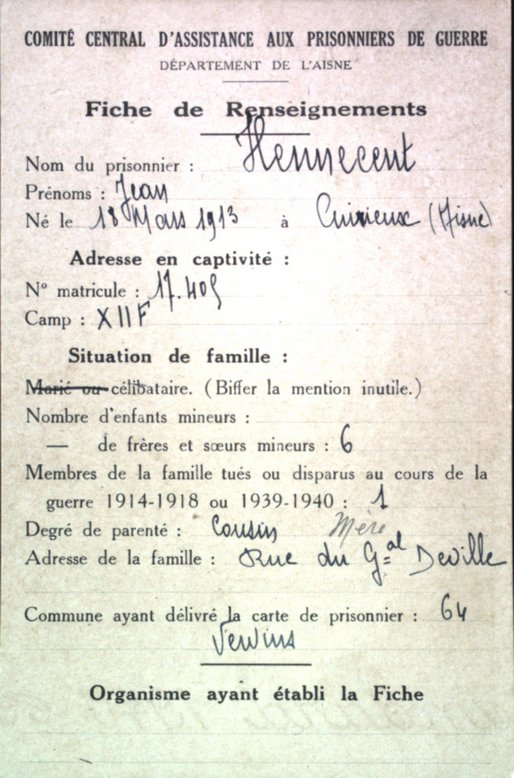 COMITÉ CENTRAL D'ASSISTANCE AUX PRISONNIERS DE GUERRE
DÉPARTEMENT DE L'AISNE
Fiche de Renseignements
Nom du prisonnier : Hennecent
Prénoms : Jean
Né le 18 Mars 1913 à Cuirieux (Aisne)
Adresse en captivité :
N° matricule : 17.405
Camp : XII F
Situation de famille :
Marié ou célibataire. (Biffer la mention inutile.)
Nombre d'enfants mineurs :
— de frères et sœurs mineurs : 6
Membres de la famille tués ou disparus au cours de la
guerre 1914-1918 ou 1939-1940 : 1
Degré de parenté : Cousin Mère
Adresse de la famille : Rue du Gal Deville
Commune ayant délivré la carte de prisonnier : 64
Vervins
Organisme ayant établi la Fiche